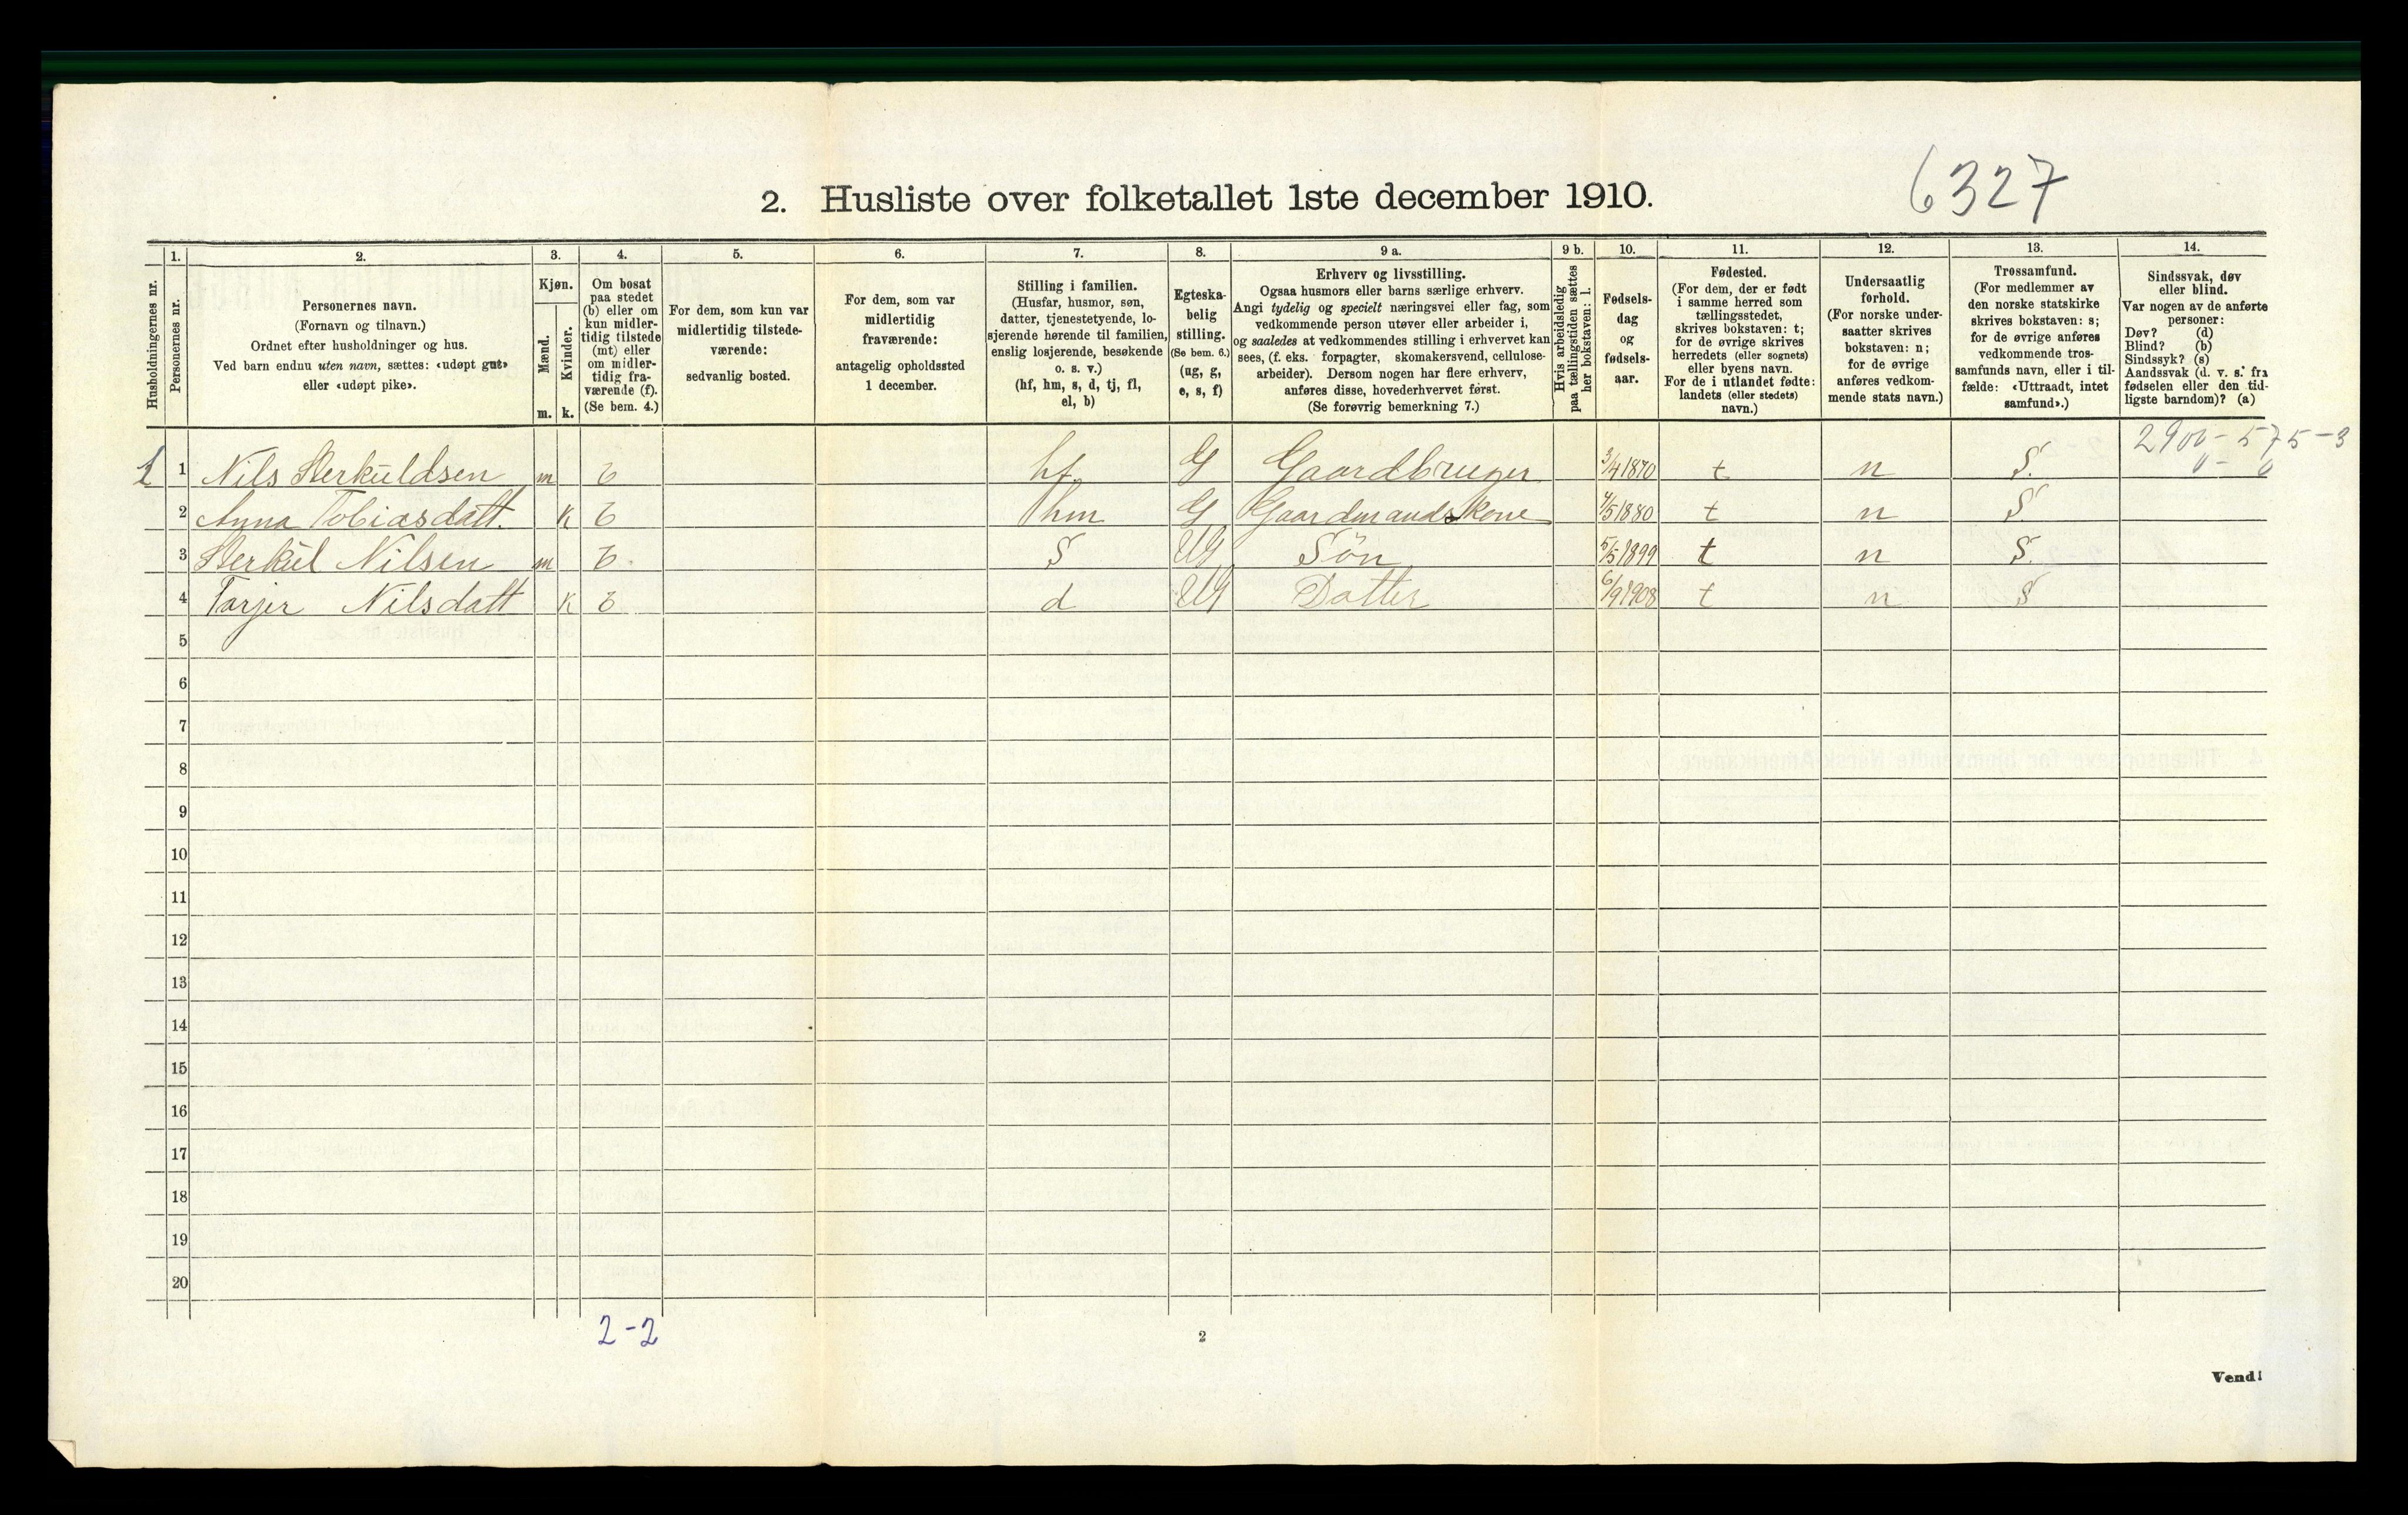 6327
2. Husliste over folketallet 1ste december 1910.
Husholdningernes nr.
1.
Personernes nr.
2.
Personernes navn.
(Fornavn og tilnavn.)
Ordnet efter husholdninger og hus.
Ved barn endnu uten navn, sættes: «udøpt gut»
eller «udøpt pike».
3.
Kjøn.
Mænd.
Kvinder.
m.
k.
4.
Om bosat
paa stedet
(b) eller om
kun midler-
tidig tilstede
(mt) eller
om midler-
tidig fra-
værende (f).
(Se bem. 4.)
5.
For dem, som kun var
midlertidig tilstede-
værende:
sedvanlig bosted.
6.
For dem, som var
midlertidig
fraværende:
antagelig opholdssted
1 december.
7.
Stilling i familien.
(Husfar, husmor, søn,
datter, tjenestetyende, lo-
sjerende hørende til familien,
enslig losjerende, besøkende
o. s. v.)
(hf, hm, s, d, tj, fl,
el, b)
8.
Egteska-
belig
stilling.
(Se bem. 6.)
(ug, g,
e, s, f)
9 a.
Erhverv og livsstilling.
Ogsaa husmors eller barns særlige erhverv.
Angi tydelig og specielt næringsvei eller fag, som
vedkommende person utøver eller arbeider i,
og saaledes at vedkommendes stilling i erhvervet kan
sees, (f. eks. forpagter, skomakersvend, cellulose-
arbeider). Dersom nogen har flere erhverv,
anføres disse, hovederhvervet først.
(Se forøvrig bemerkning 7.)
9 b.
Hvis arbeidsledig
paa tællingstiden sættes
her bokstaven: l.
10.
Fødsels-
dag
og
fødsels-
aar.
11.
Fødested.
(For dem, der er født
i samme herred som
tællingsstedet,
skrives bokstaven: t;
for de øvrige skrives
herredets (eller sognets)
eller byens navn.
For de i utlandet fødte:
landets (eller stedets)
navn.)
12.
Undersaatlig
forhold.
(For norske under-
saatter skrives
bokstaven: n;
for de øvrige
anføres vedkom-
mende stats navn.)
13.
Trossamfund.
(For medlemmer av
den norske statskirke
skrives bokstaven: s;
for de øvrige anføres
vedkommende tros-
samfunds navn, eller i til-
fælde: «Uttraadt, intet
samfund».)
14.
Sindssvak, døv
eller blind.
Var nogen av de anførte
personer:
Døv? (d)
Blind? (b)
Sindssyk? (s)
Aandssvak (d. v. s. fra
fødselen eller den tid-
ligste barndom)? (a)
2900 - 575 - 3
0 - 0
1 1 Nils Herkuldsen m b hf G Gaardbruger 3/4 1870 t n S.
2 Anna Tobiasdatt. K b hm G Gaardmandskone 4/5 1880 t n S.
3 Herkül Nilsen m b S UG Sön 5/5 1899 t n S.
4 Tarjer Nilsdatt K b d UG Datter 6/9 1908 t n S
5
6
7
8
9
10
11
12
13
14
15
16
17
18
19
20
2-2
2
Vend!